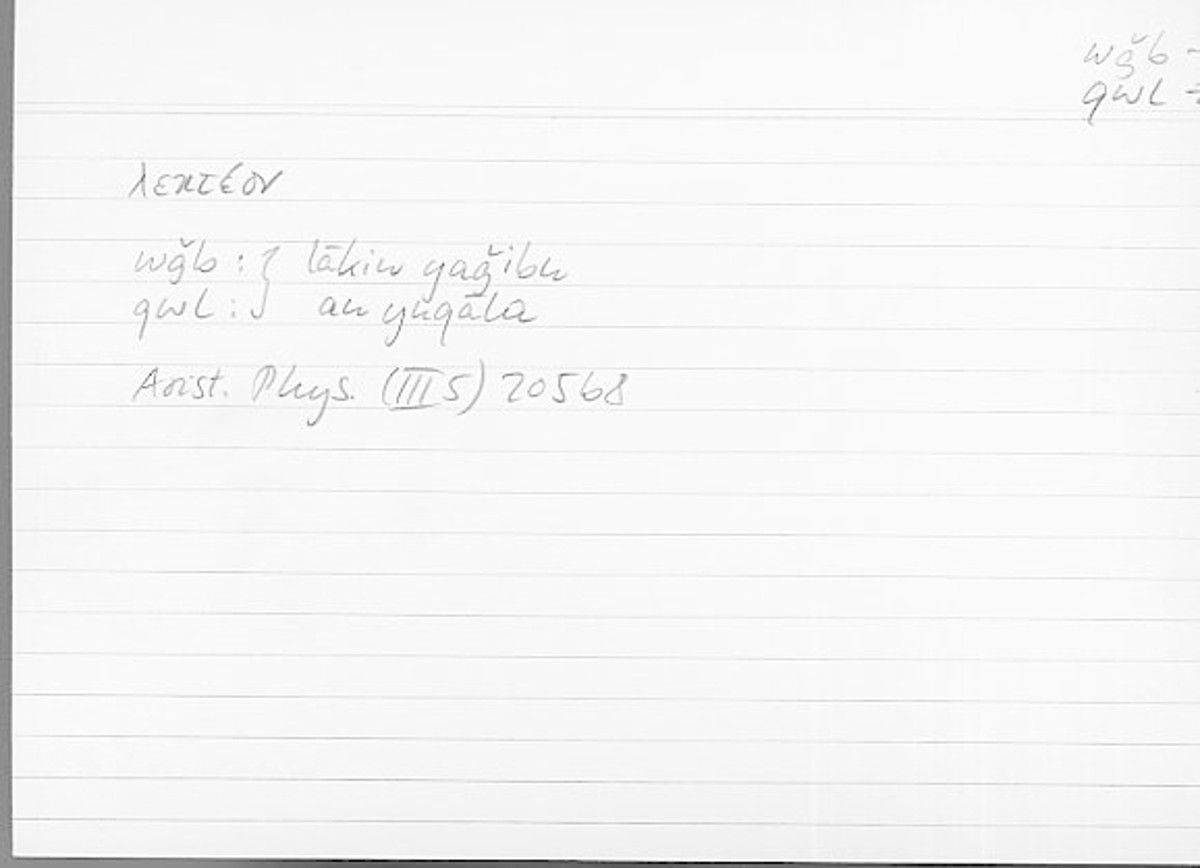 wǧb -
qwl -
λεκτέον
wǧb : } lākin yaǧibu
qwl : } an yuqāla
Arist. Phys. (III 5) 205b8